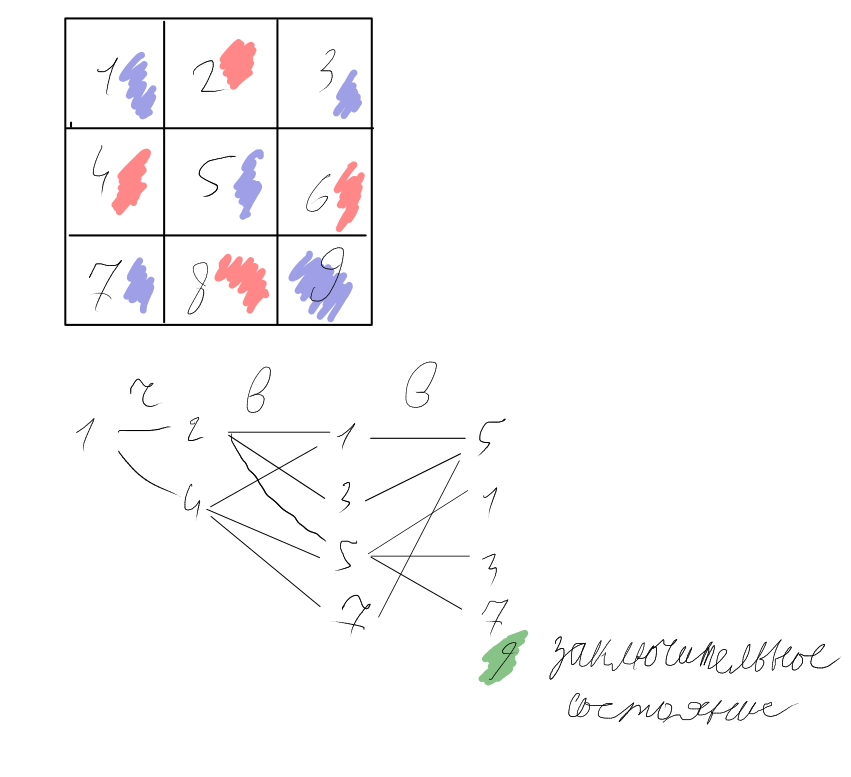 1 2 3
4 5 6
7 8 9
ч в в
1 2 1 5
4 3 1
5 3
7 7
9 заключительное
состояние